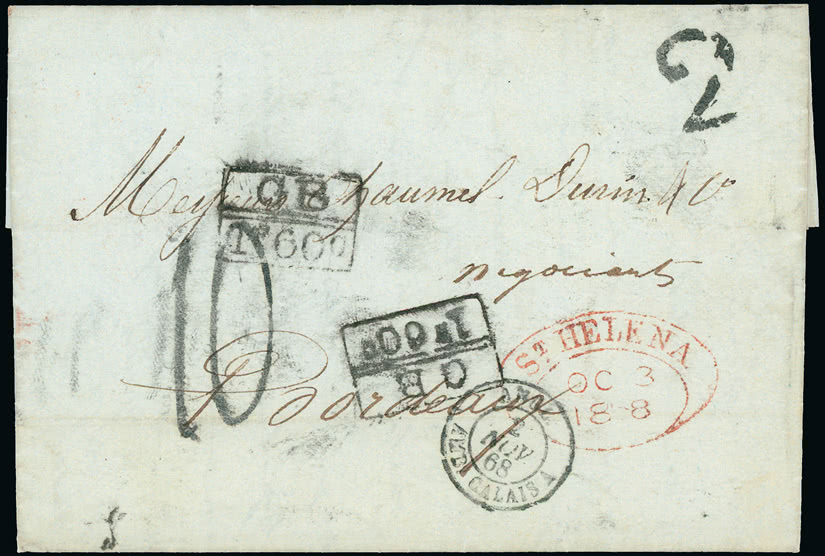 2
Messieurs Chaumel Durin & Co
negociants
Bordeaux
GB
1F60c
10
GB
1F60c
ST HELENA
OC 3
18 8
2
NOV
68
AMB. CALAIS A